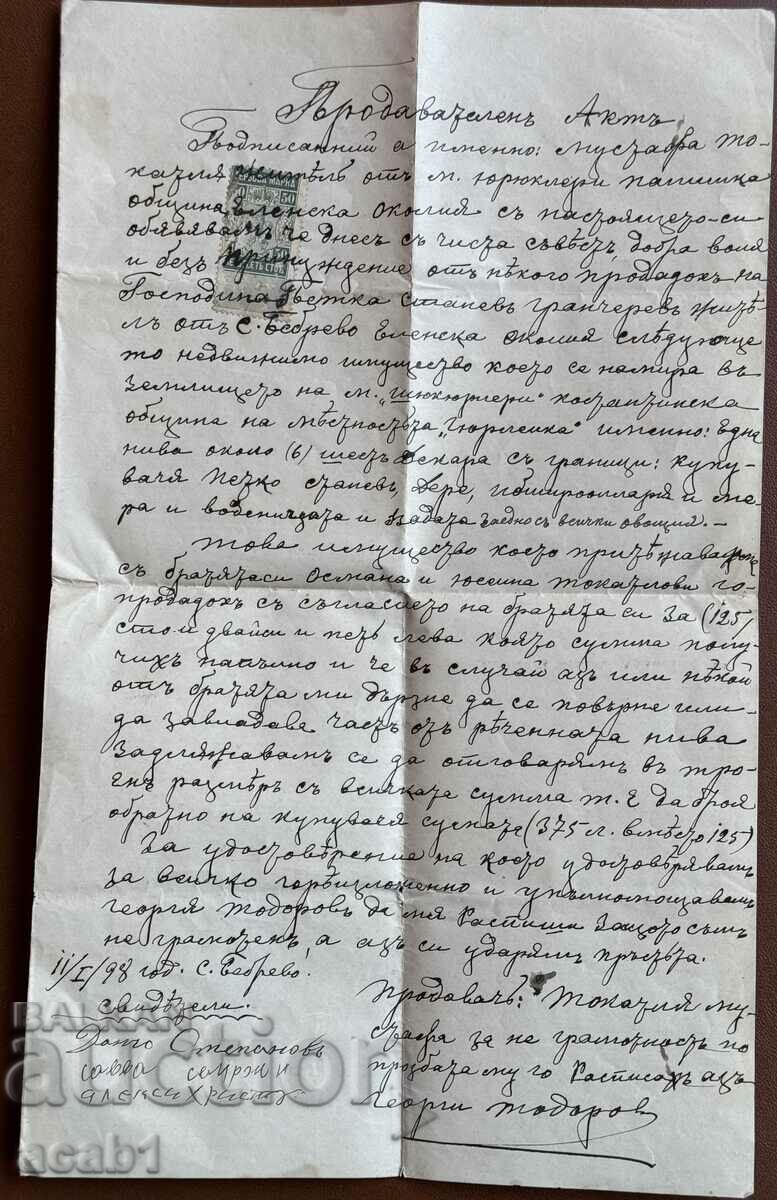 Продавателенъ Актъ
Подписанний а именно: Мустафа То-
казля жителъ отъ м. Юрюклери
община Еленска околия съ настоящето-си
обявявамъ че днесъ съ чиста съвѣсть, добра воля
и безъ принуждение отъ нѣкого продадохъ на
Господина Пѣтка Станевъ Гранчеревъ жите-
лъ отъ с. Бебрево Еленска околия слѣдующе
то недвижимо имущество което се намира въ
землището на м.
община на мѣстностьта именно: Една
нива около (6) шесть декара съ граници: Купу-
вачя Петко Станевъ, Дере, и ме-
ра и воденицата и вадата заедно съ всички овощия. –
Това имущество което притѣжавахме
съ братятаси Османа и Юсеина Токатлови го-
продадохъ съ съгласието на братята си за (125)
сто и двайси и петь лева която сумма полу-
чихъ напълно и че въ случай азъ или нѣкой
отъ братята ми дързне да се повърне или-
да завладѣе часть отъ рѣченната нива
Задлъжавамъ се да отговарямъ въ тро-
енъ размѣръ съ всичката сумма т. е да броя
обратно на купувачя сумата (375 л. вмѣсто 125)
За удостовѣрение на което удостовѣрявамъ
за всичко горѣизложенно и упълномощавамъ
Георги Тодоровъ да мя распиши защото съмъ
не грамотенъ, а азъ си ударямъ пръста.
11/I/98 год. с. Бебрево.
Свидѣтели:
Дончо Степановъ
Продавачъ: Токатля Му-
стафа за не грамотность по
прозбата му го расписахъ азъ
Георги Тодоров
50
BALKAN
auction
acab1